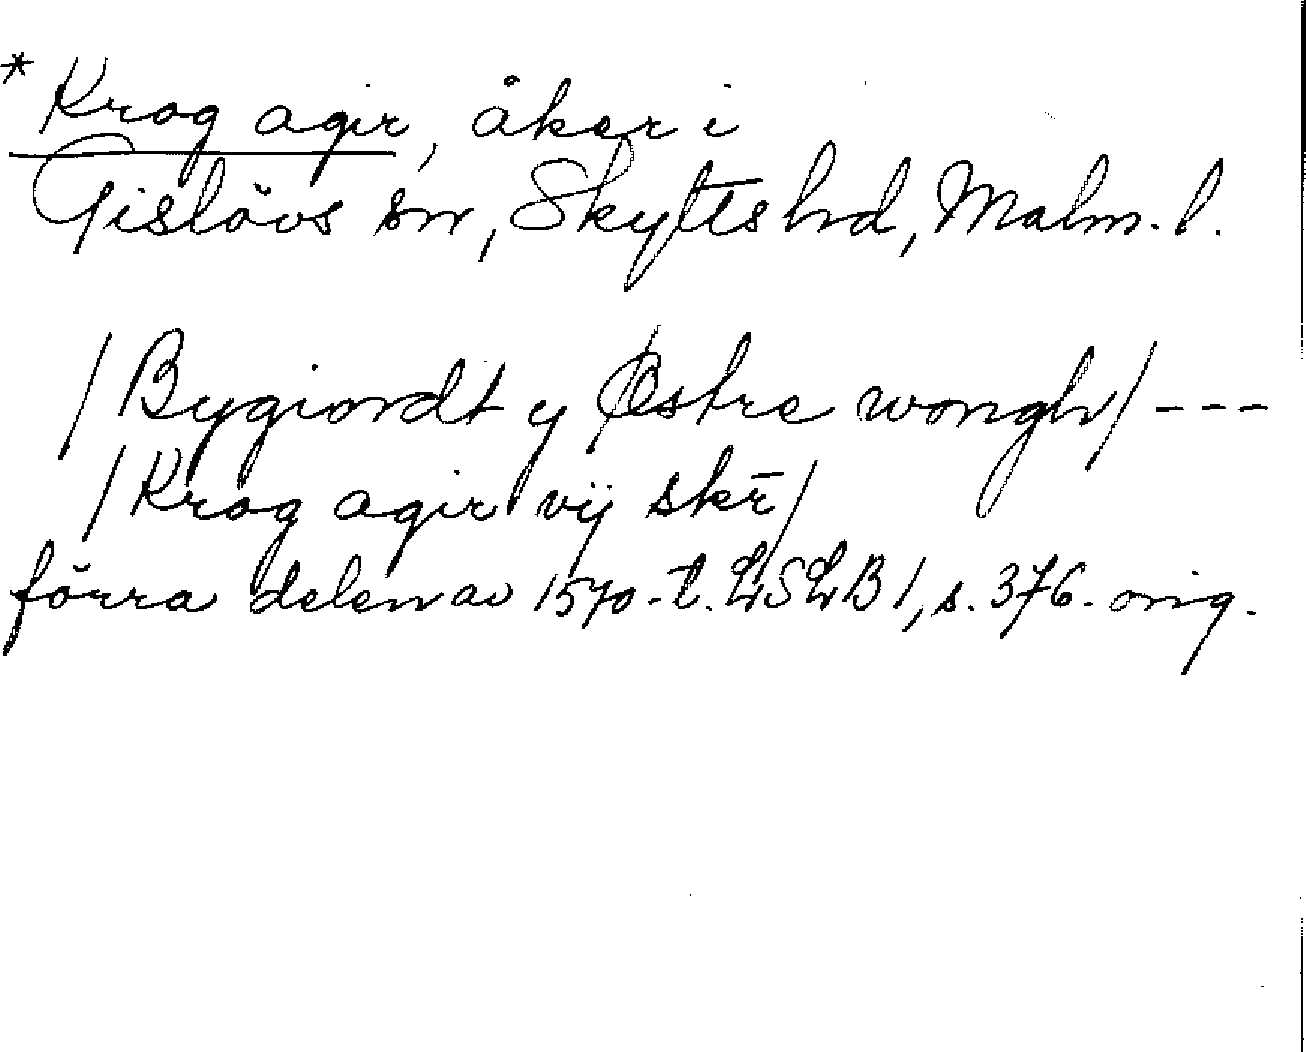 * Krog agir, åker i
Gislövs sn, Skytts hd, Malm. l.
/Bygiordt y Østre wongh/ ---
/Krog agir vij skr̄/
förra delen av 1570-t. LSLB 1, s. 376. orig.